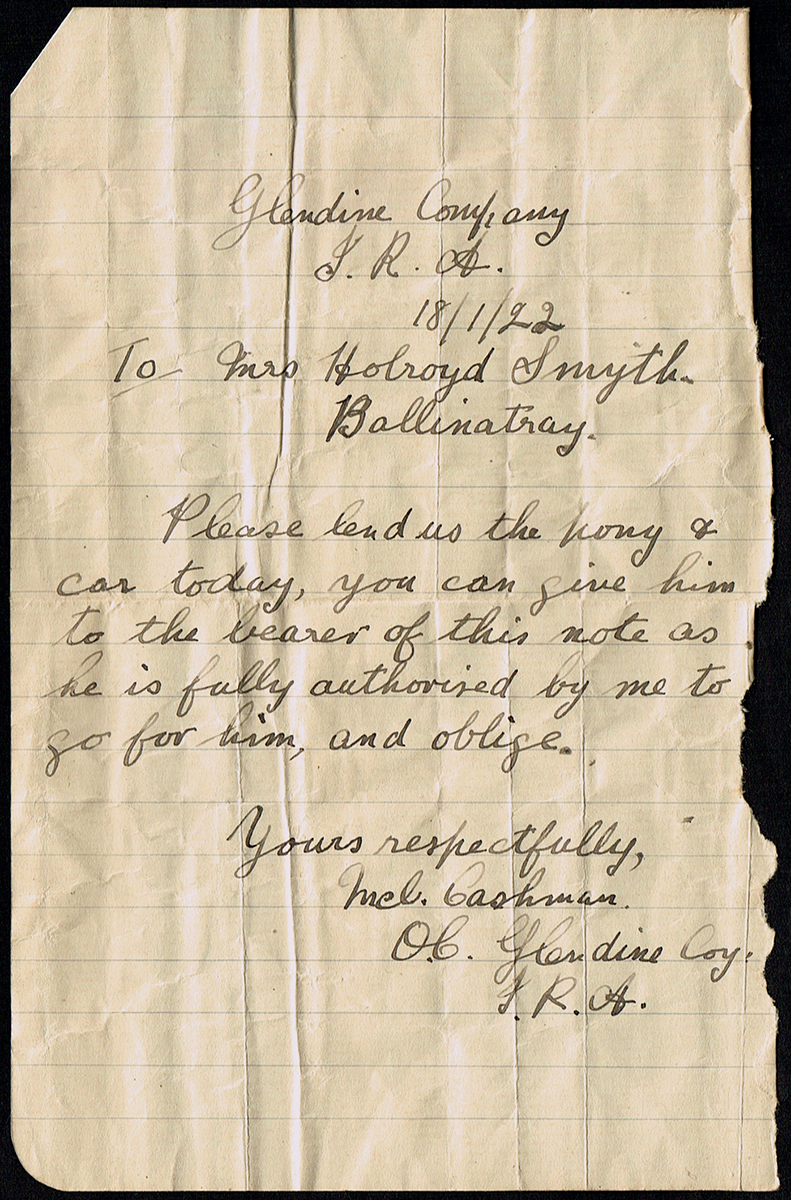 Glendine Company
I. R. A.
18/1/22
To Mrs Holroyd Smyth.
Ballinatray.
Please lend us the pony &
car today, you can give him
to the bearer of this note as
he is fully authorised by me to
go for him, and oblige.
Yours respectfully,
Mcl. Cashman.
O.C. Glendine Coy.
I. R. A.